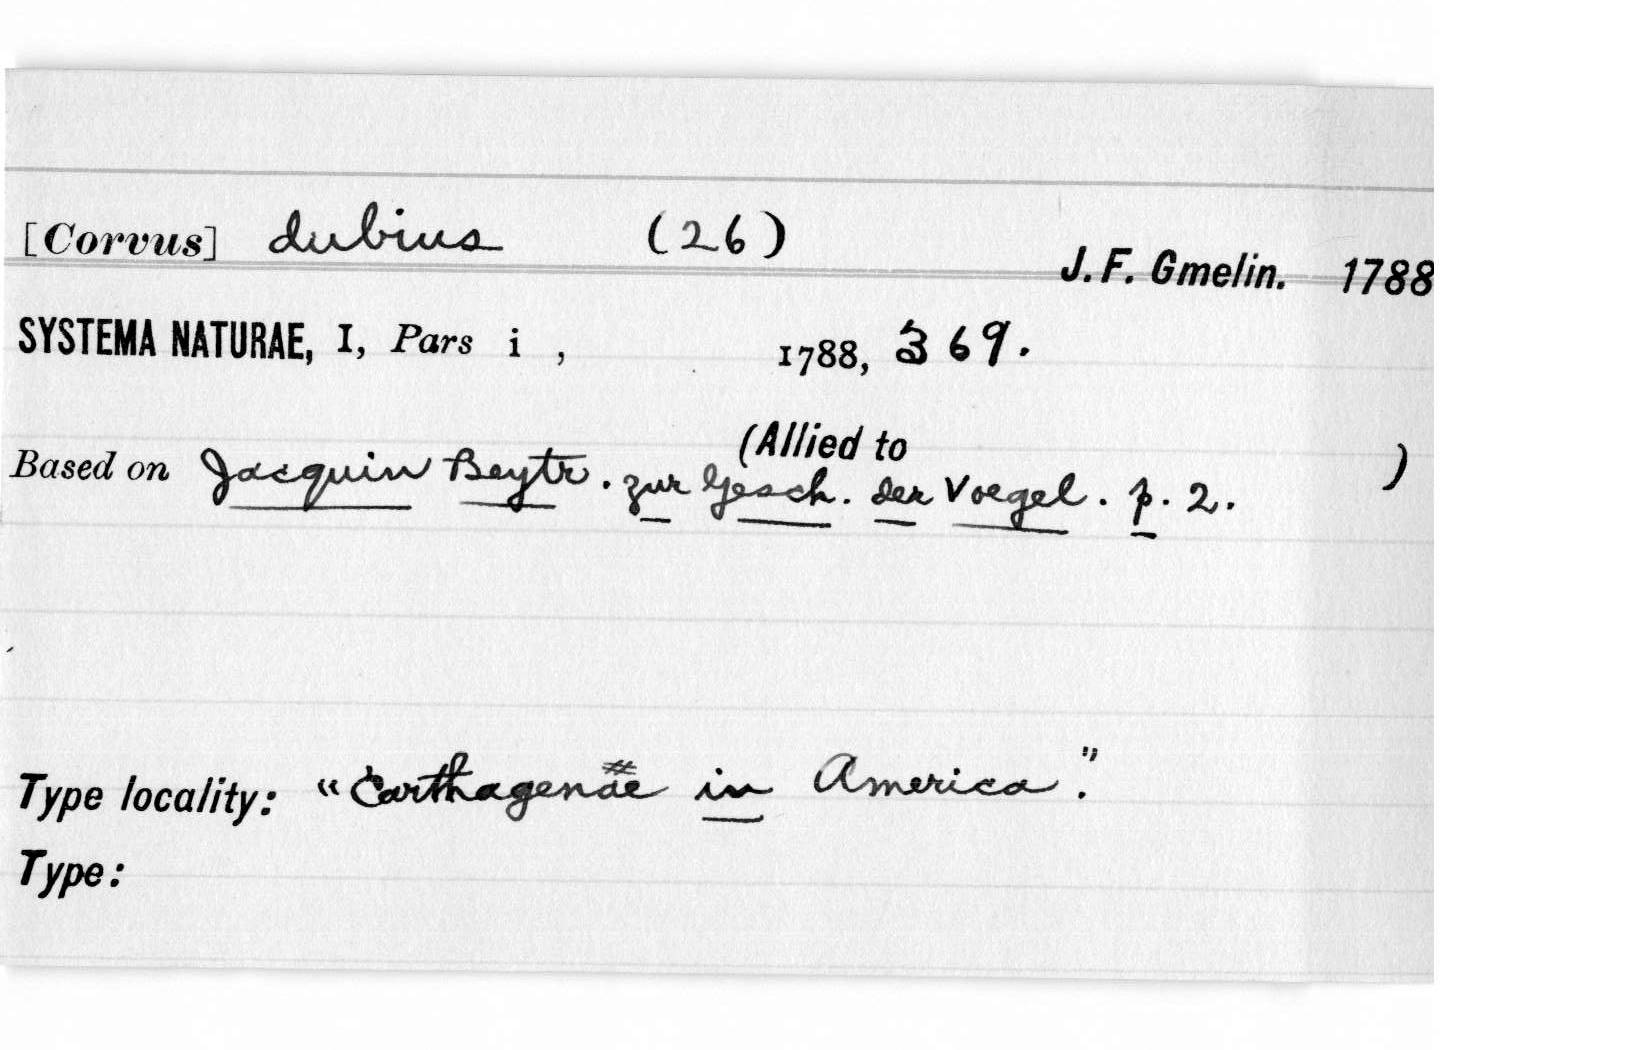 [Corvus] dubius (26)
J. F. Gmelin. 1788
SYSTEMA NATURAE, I, Pars i , 1788, 369.
(Allied to )
Based on Jacquin Beytr. zur Gesch. der Voegel. p. 2.
Type locality: "Carthagenae in America."
Type: